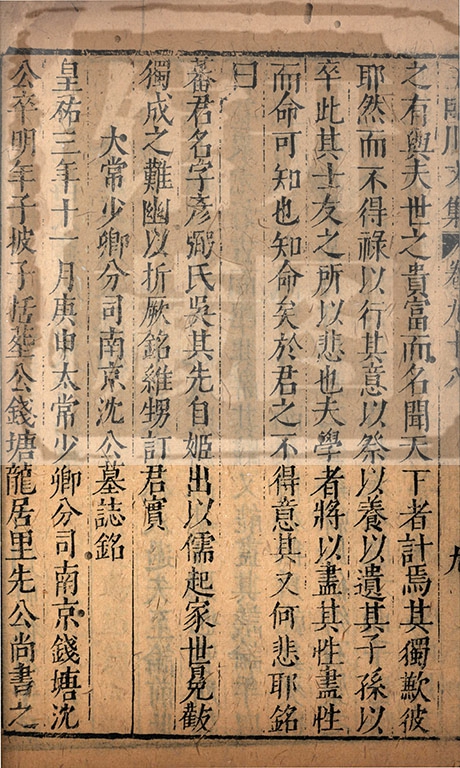 臨川文集 卷九十八 九
之有與夫世之貴富而名聞天下者計焉其獨歉彼
耶然而不得祿以行其意以祭以養以遺其子孫以
卒此其士友之所以悲也夫學者將以盡其性盡性
而命可知也知命矣於君之不得意其又何悲耶銘
曰
蕃君名字彥弼氏吳其先自姬出以儒起家世冕黻
獨成之難幽以折厥銘維甥訂君實
大常少卿分司南京沈公墓誌銘
皇祐三年十一月庚申太常少卿分司南京錢塘沈
公卒明年子披子括塟公錢塘龍居里先公尚書之